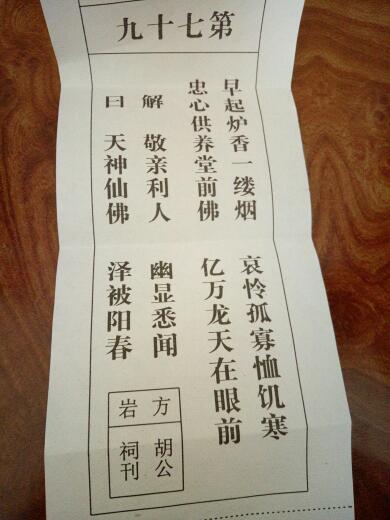 第七十九
早起炉香一缕烟 哀怜孤寡恤饥寒
忠心供养堂前佛 亿万龙天在眼前
解 敬亲利人 幽显悉闻
曰 天神仙佛 泽被阳春
方岩
胡公祠刊